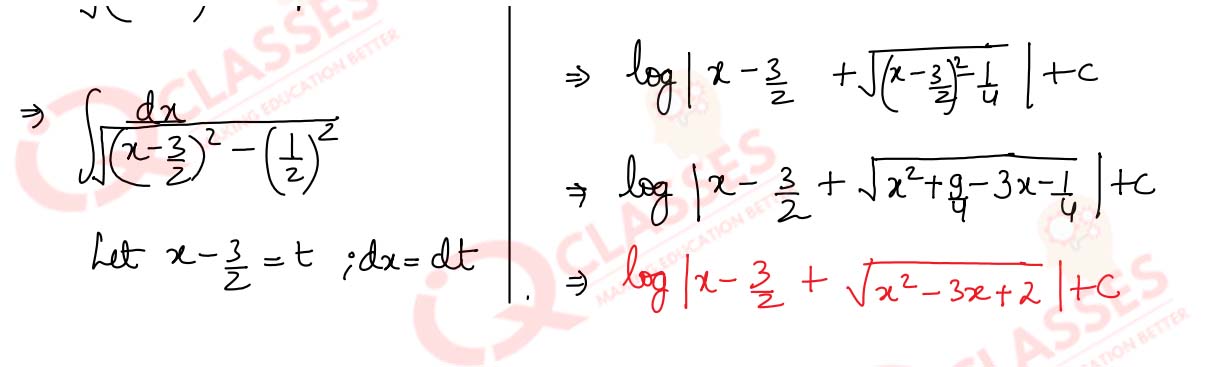 ⇒ ∫ dx / √((x - 3/2)² - (1/2)²)
Let x - 3/2 = t ; dx = dt
⇒ log | x - 3/2 + √((x - 3/2)² - 1/4) | + c
⇒ log | x - 3/2 + √(x² + 9/4 - 3x - 1/4) | + c
⇒ log | x - 3/2 + √(x² - 3x + 2) | + c
CLASSES
MAKING EDUCATION BETTER
CLASSES
MAKING EDUCATION BETTER
CLASSES